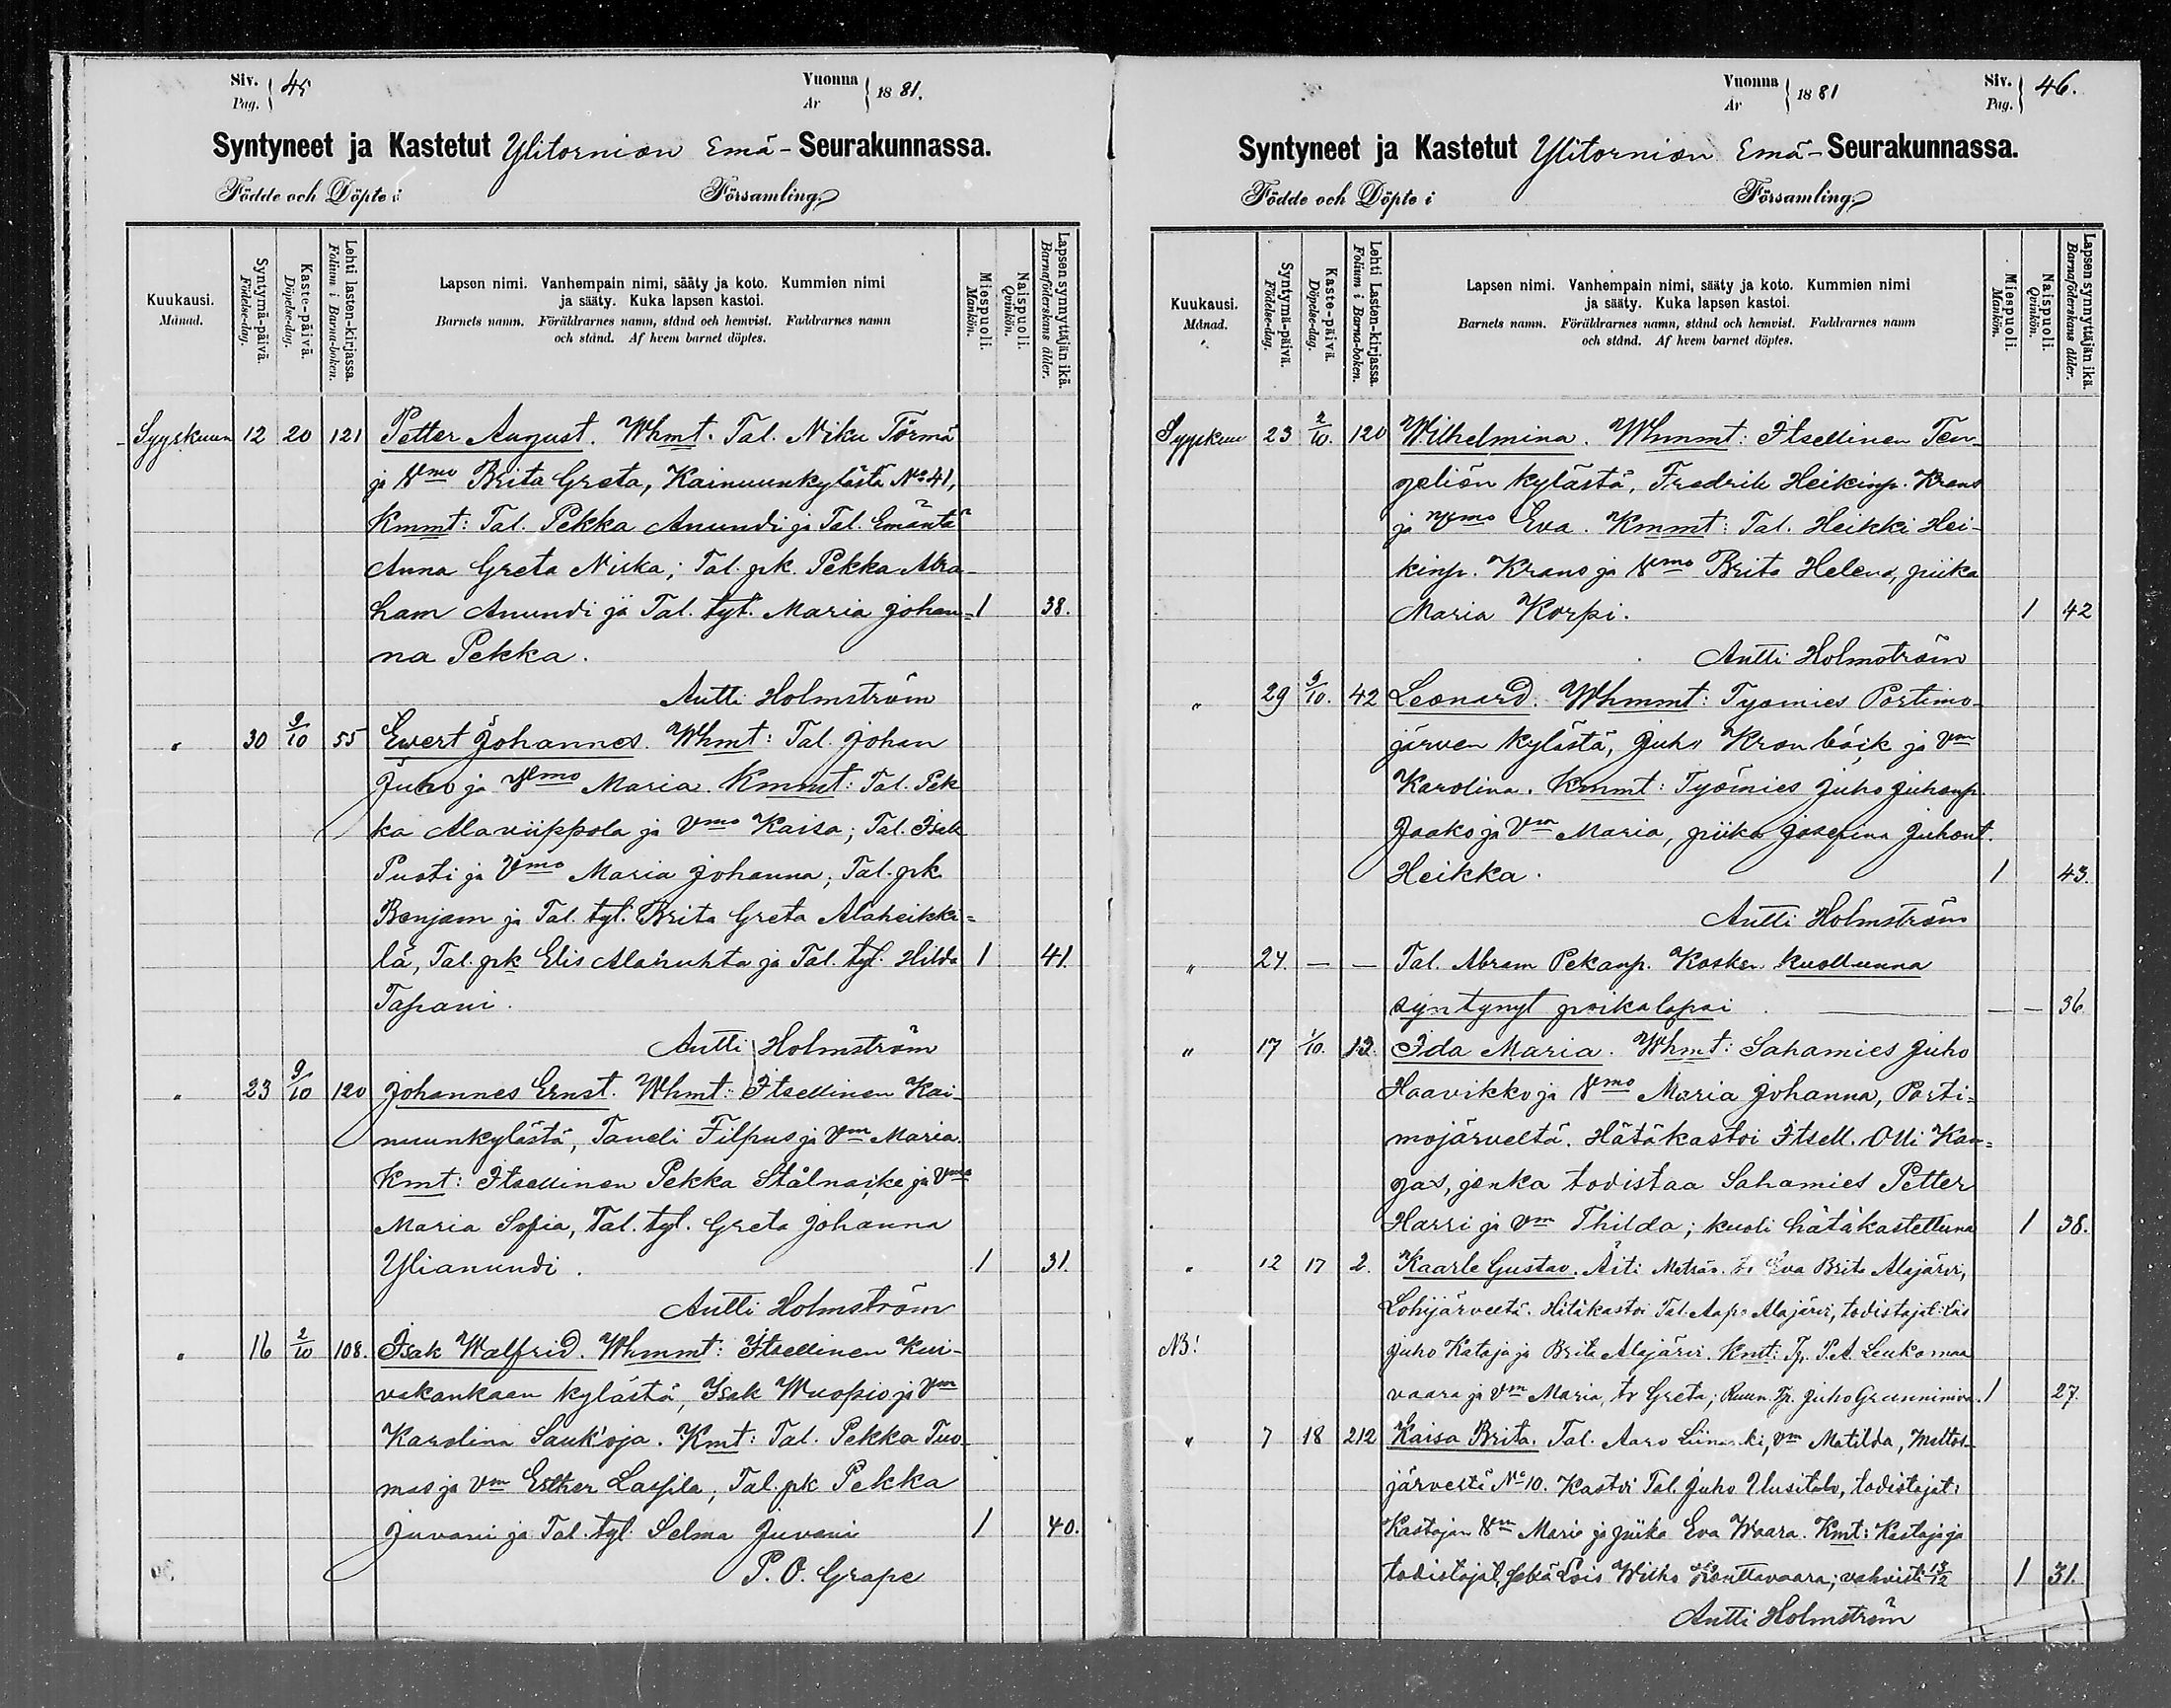 Siv. Pag. 45
Vuonna År 1881.
Syntyneet ja Kastetut Ylitornion Emä-Seurakunnassa.
Födde och Döpte i Församling.
Kuukausi. Månad.
Syntymä-päivä. Födelse-dag.
Kaste-päivä. Döpelse-dag.
Lehti lasten-kirjassa. Folium i Barna-boken.
Lapsen nimi. Vanhempain nimi, sääty ja koto. Kummien nimi
ja sääty. Kuka lapsen kastoi.
Barnets namn. Föräldrarnes namn, stånd och hemvist. Faddrarnes namn
och stånd. Af hvem barnet döptes.
Miespuoli. Mankön.
Naispuoli. Qvinkön.
Lapsen synnyttäjän ikä. Barnaföderskans ålder.
Syyskuun 12 20 121 Petter August. Whmt. Tal. Niku Törmä
ja Vmo Brita Greta, Kainuunkylästä No 41,
Kmmt: Tal. Pekka Anundi ja Tal. Emäntä
Anna Greta Niska; Tal. pk. Pekka Abra-
ham Anundi ja Tal. tyt. Maria Johan- 1 38.
na Pekka.
Antti Holmström
" 30 9/10 55 Ewert Johannes. Whmt: Tal. Johan
Juho ja Vmo Maria. Kmmt: Tal. Pek
ka Alaviippola ja Vmo Kaisa; Tal. Isak
Puoti ja Vmo Maria Johanna, Tal. pk
Benjam ja Tal. tyt. Brita Greta Alaheikki=
lä, Tal. pk Elis Alaruhta ja Tal. tyt. Hilda 1 41.
Tapani.
Antti Holmström
" 23 9/10 120 Johannes Ernst. Whmt: Itsellinen Kai-
nuunkylästä, Taneli Filpus ja Vm Maria.
Kmt: Itsellinen Pekka Stålnacke ja Vmo
Maria Sofia, Tal. tyt. Greta Johanna
Ylianundi. 1 31.
Antti Holmström
" 16 2/10 108. Isak Walfrid. Whmmt: Itsellinen Kui-
vakankaan kylästä, Isak Wuopio ja Vm
Karolina Saukoja. Kmt: Tal. Pekka Tuo-
mas ja Vm Esther Lassila, Tal. pk Pekka
Juvani ja Tal. tyt. Selma Juvani 1 40.
P. O. Grape
Vuonna År 1881
Siv. Pag. 46.
Syntyneet ja Kastetut Ylitornion Emä-Seurakunnassa.
Födde och Döpte i Församling.
Kuukausi. Månad.
Syntymä-päivä. Födelse-dag.
Kaste-päivä. Döpelse-dag.
Lehti Lasten-kirjassa. Folium i Barna-boken.
Lapsen nimi. Vanhempain nimi, sääty ja koto. Kummien nimi
ja sääty. Kuka lapsen kastoi.
Barnets namn. Föräldrarnes namn, stånd och hemvist. Faddrarnes namn
och stånd. Af hvem barnet döptes.
Miespuoli. Mankön.
Naispuoli. Qvinkön.
Lapsen synnyttäjän ikä. Barnaföderskans ålder.
Syyskuu 23 2/10. 120 Wilhelmina. Whmmt: Itsellinen Ten-
geliön kylästä, Fredrik Heikinp. Krans
ja Vmo Eva. Kmmt: Tal. Heikki Hei-
kinp. Krans ja Vmo Brita Helena, piika
Maria Korpi. 1 42
Antti Holmström
" 29 9/10. 42 Leonard. Whmmt: Työmies Portimo-
järven kylästä, Juho Kronbäck ja Vm
Karolina. Kmmt: Työmies Juho Juhonp.
Jaako ja Vm Maria, piika Josefina Juhont.
Heikka. 1 43.
Antti Holmström
" 24. — — Tal. Abram Pekanp. Kosken kuolluna
syntynyt poikalapsi — — 36
" 17 1/10. 13. Ida Maria. Whmt: Sahamies Juho
Haavikko ja Vmo Maria Johanna, Porti=
mojärveltä. Hätäkastoi Itsell. Olli Kan=
gas, jonka todistaa Sahamies Petter
Harri ja Vm Thilda; kuoli hätäkastettuna 1 38.
" 12 17 2. Kaarle Gustav. Äiti Eva Brita Alajärvi,
Lohijärveltä. Hätäkastoi Tal. Aapo Alajärvi, todistajat:
NB! Juho Kataja ja Brita Alajärvi. Kmt: P.A. Leukumaa
vaara ja Vm Maria, Greta; Juho Grunnimiva. 1 27.
" 7 18 212 Kaisa Brita. Tal. Aaro, Vm Matilda, Meltos-
järvestä No 10. Kastoi Tal. Juho Uusitalo, todistajat:
Kastajan Vm Maria ja piika Eva Waara. Kmt: Kastaja ja
todistajat, sekä Lois Wilho Konttavaara; vahvisti 13/12 1 31.
Antti Holmström